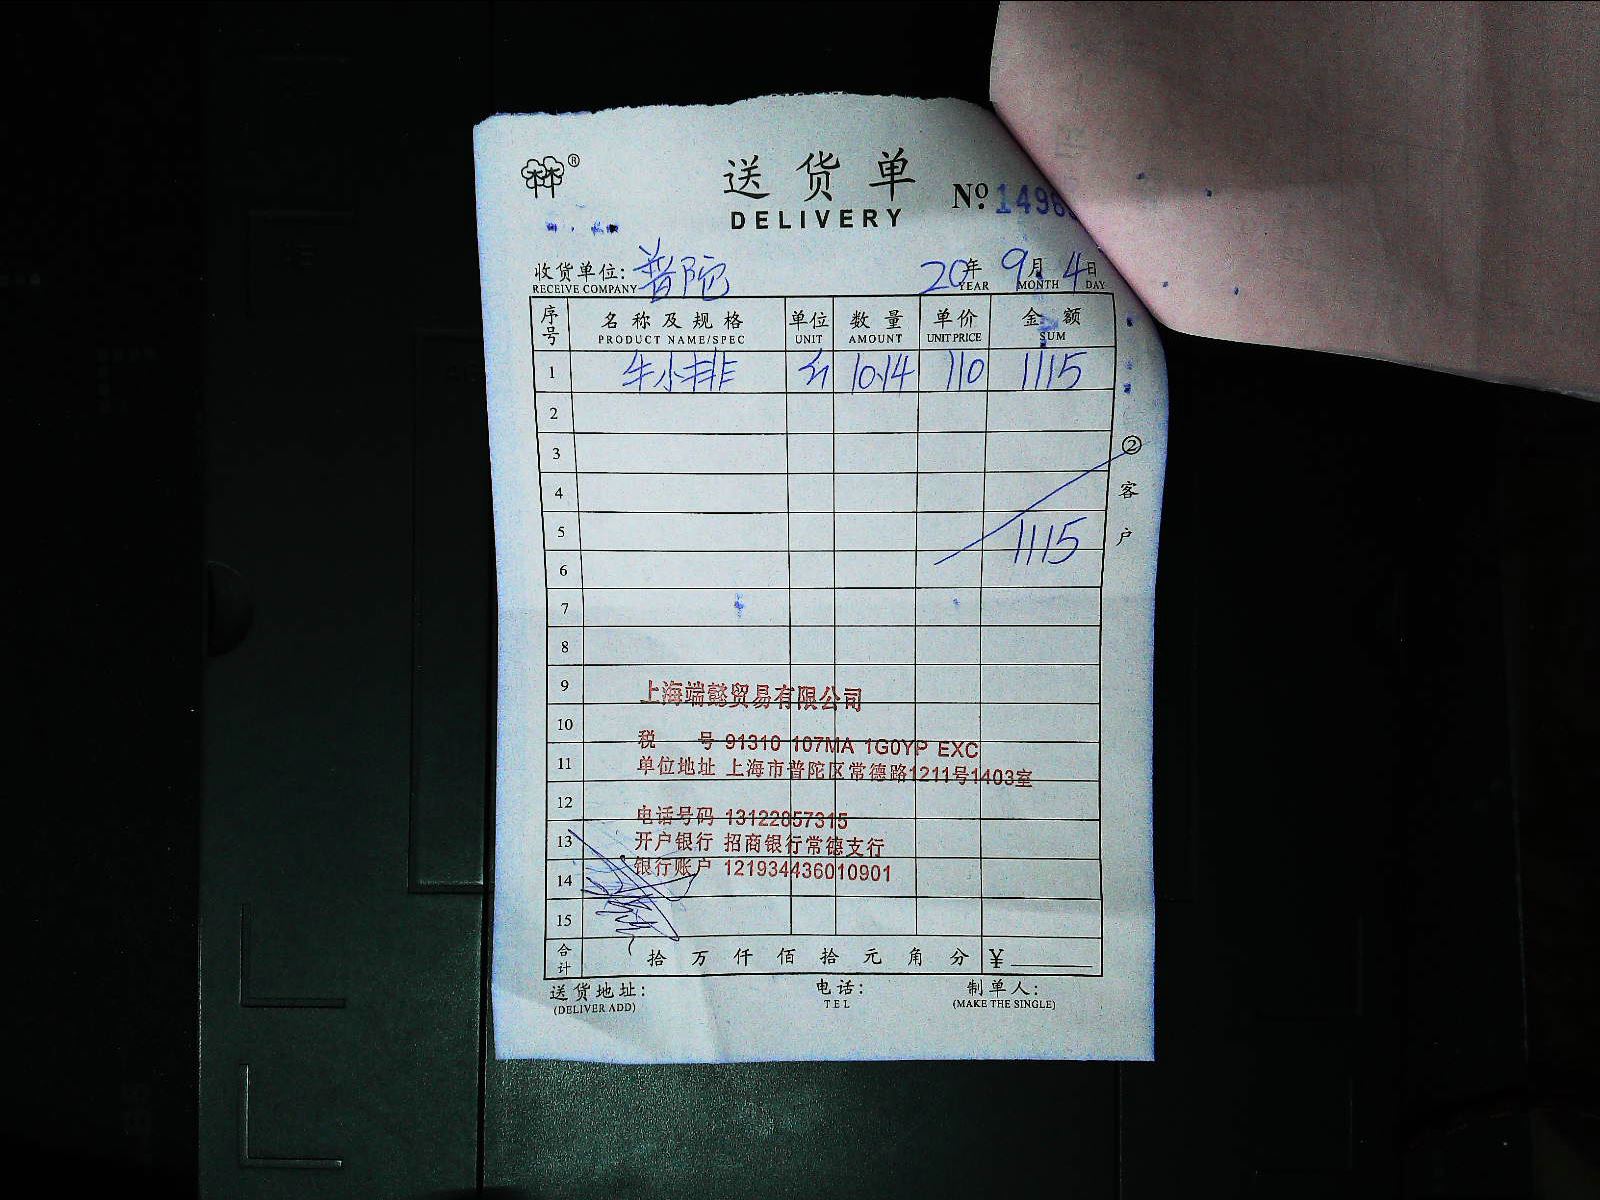 ®
送货单
DELIVERY
Nº 1498
收货单位: 普陀 20年 9月 4日
RECEIVE COMPANY YEAR MONTH DAY
序号 名称及规格 单位 数量 单价 金额
PRODUCT NAME/SPEC UNIT AMOUNT UNIT PRICE SUM
1 牛小排 10.14 110 1115
2
3
4
5 1115
6
7
8
9
10
11
12
13
14
15
② 客户
上海端懿贸易有限公司
税 号 91310 107MA 1G0YP EXC
单位地址 上海市普陀区常德路1211号1403室
电话号码 13122857315
开户银行 招商银行常德支行
银行账户 121934436010901
合计 拾 万 仟 佰 拾 元 角 分 ¥
送货地址: 电话: 制单人:
(DELIVER ADD) TEL (MAKE THE SINGLE)